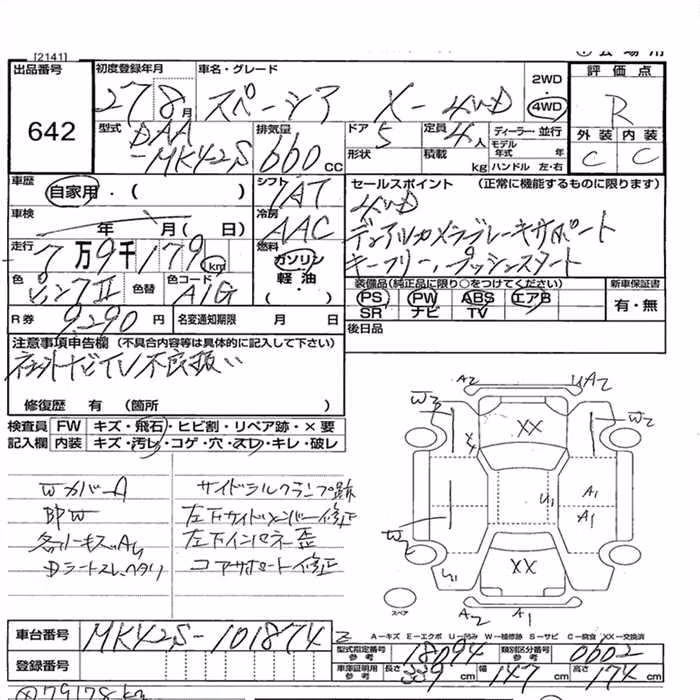 [2141]
出品番号 初度登録年月 車名・グレード 2WD 評価点
642 27 8月 スペーシア X-4WD 4WD R
外装 内装
C C
型式 DAA-MK42S 排気量 660 CC ドア 5 定員 4人 ディーラー・並行
形状 積載 kg モデル年式 年 ハンドル 左・右
車歴 自家用・( ) シフト IAT セールスポイント (正常に機能するものに限ります)
車検 年 月( 日) 冷房 AAC 4WD
デュアルカメラブレーキサポート
走行 7万9千179 km 燃料 ガソリン 軽・油 ・( ) キーフリー、プッシュスタート
色 ピンクII 色替 色コード A1G
装備品(純正品に限り○をつけてください) 新車保証書
PS PW ABS エアB 有・無
SR ナビ TV
R券 9,290円 名変通知期限 月 日 後日品
注意事項申告欄 (不具合内容等は具体的に記入して下さい)
社外ナビTV不良扱い
修復歴 有 (箇所
検査員 FW キズ・飛石・ヒビ割・リペア跡・×要
記入欄 内装 キズ・汚レ・コゲ・穴・スレ・キレ・破レ
WカバーA サイドシルクランプ跡
即W 左下サイドメンバー修正
各所キズAU 左下インパネ歪
Dシートスレ、ヘタリ コアサポート修正
A2 UA2
W3 W2
XX
U1 A1
A1
W2
XX
スペア
A2 A1
A-キズ E-エクボ U-凹み W-補修跡 S-サビ C-腐食 XX-交換済
車台番号 MK42S-101874
型式指定番号 参考 18094 類別区分番号 参考 0602
登録番号
車庫証明用 参考 長さ 339 cm 幅 147 cm 高さ 174 cm
79178km